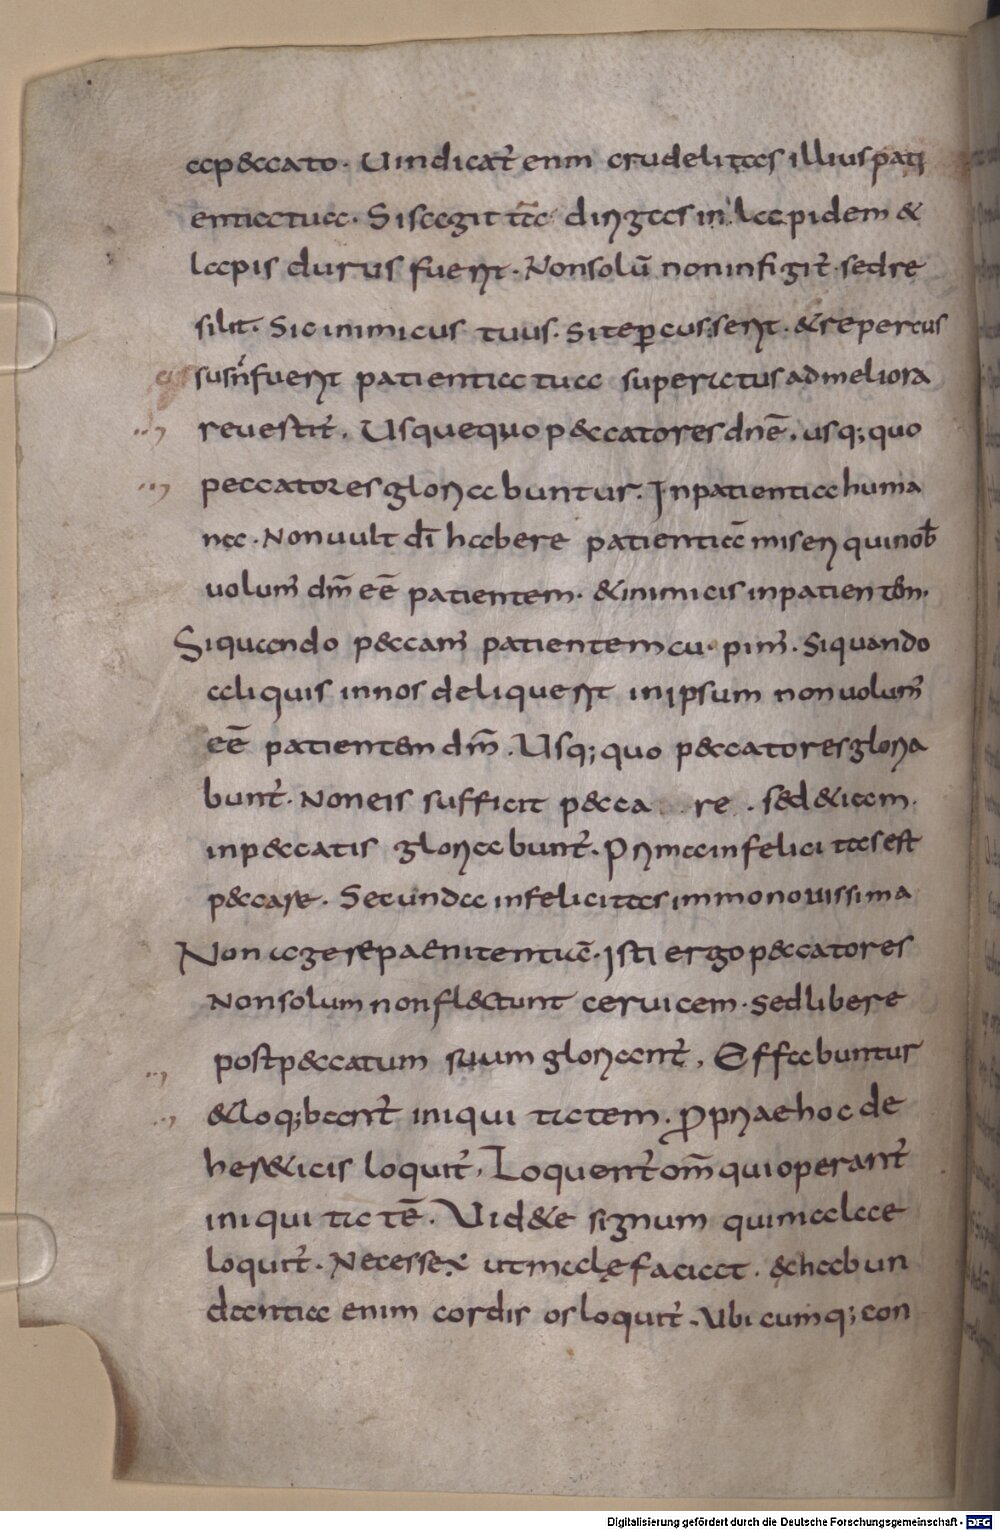 a p&ccato. Uindicat̄ enim crudelitas illius pati
entia tua. Si sagitta dirigas in lapidem &
lapis durus fuerit. Non solū non infigit̄. sed re
silit. Sic inimicus tuus. Si te ꝑcusserit. & repercus
sus n̄ fuerit patientia tua superictus ad meliora
reuertit̄. Usquequo p&ccatores dn̄e. usq; quo
peccatores gloriabuntur. Inpatientia huma
na. Non uult dī habere patientiā miseri qui nob̄
uolum̄ dm̄ eē patientem. & inimicis inpatientem.
Si quando p&ccam̄ patientem cupim̄. Si quando
aliquis in nos deliquerit in ipsum non uolum̄
eē patientem dm̄. Usq; quo p&ccatores gloria
bunt̄. Non eis sufficit p&cca re. sed & iam
in p&ccatis gloriabunt̄. Prima infelicitas est
p&ccare. Secunda infelicitas immo nouissima
Non agere paenitentiā. Isti ergo p&ccatores
Non solum non fl&ctunt ceruicem. sed libere
post p&ccatum suum gloriant̄. Effabuntur
& loq;bant̄ iniquitatem. Propriae hoc de
her&icis loquit̄. Loquent̄ om̄ qui operant̄
iniquitatē. Uid&e signum qui mala
loquit̄. Necesse ut male faciat. & habun
dantia enim cordis os loquit̄. Ubicumq; con
Digitalisierung gefördert durch die Deutsche Forschungsgemeinschaft - DFG